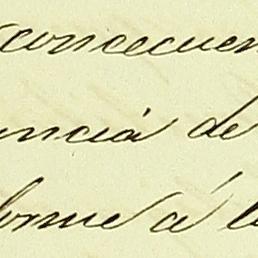 concecuen
ncia de
forme á l